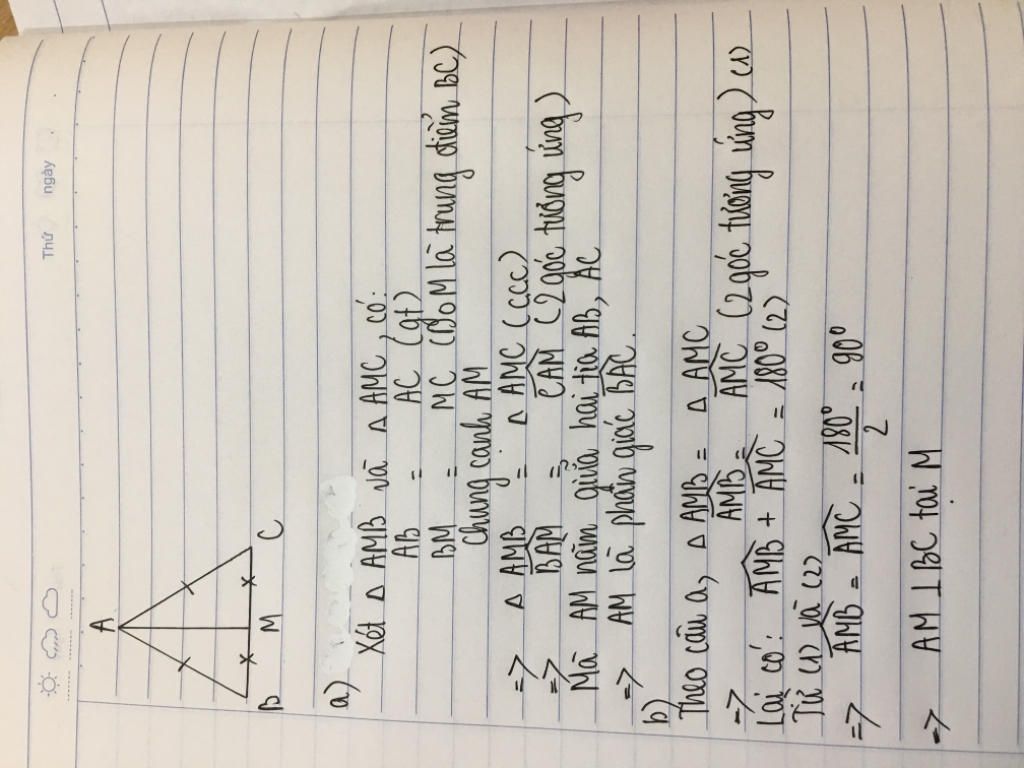 Thứ ngày
A
B M C
a)
Xét Δ AMB và Δ AMC, có:
AB = AC (gt)
BM = MC (Do M là trung điểm BC)
Chung cạnh AM
=> Δ AMB = Δ AMC (ccc)
=> BAM = CAM (2 góc tương ứng)
Mà AM nằm giữa hai tia AB, AC
=> AM là phân giác BAC.
b) Theo câu a, Δ AMB = Δ AMC
=> AMB = AMC (2 góc tương ứng) (1)
Lại có: AMB + AMC = 180° (2)
Từ (1) và (2)
=> AMB = AMC = 180°/2 = 90°
=> AM ⊥ BC tại M